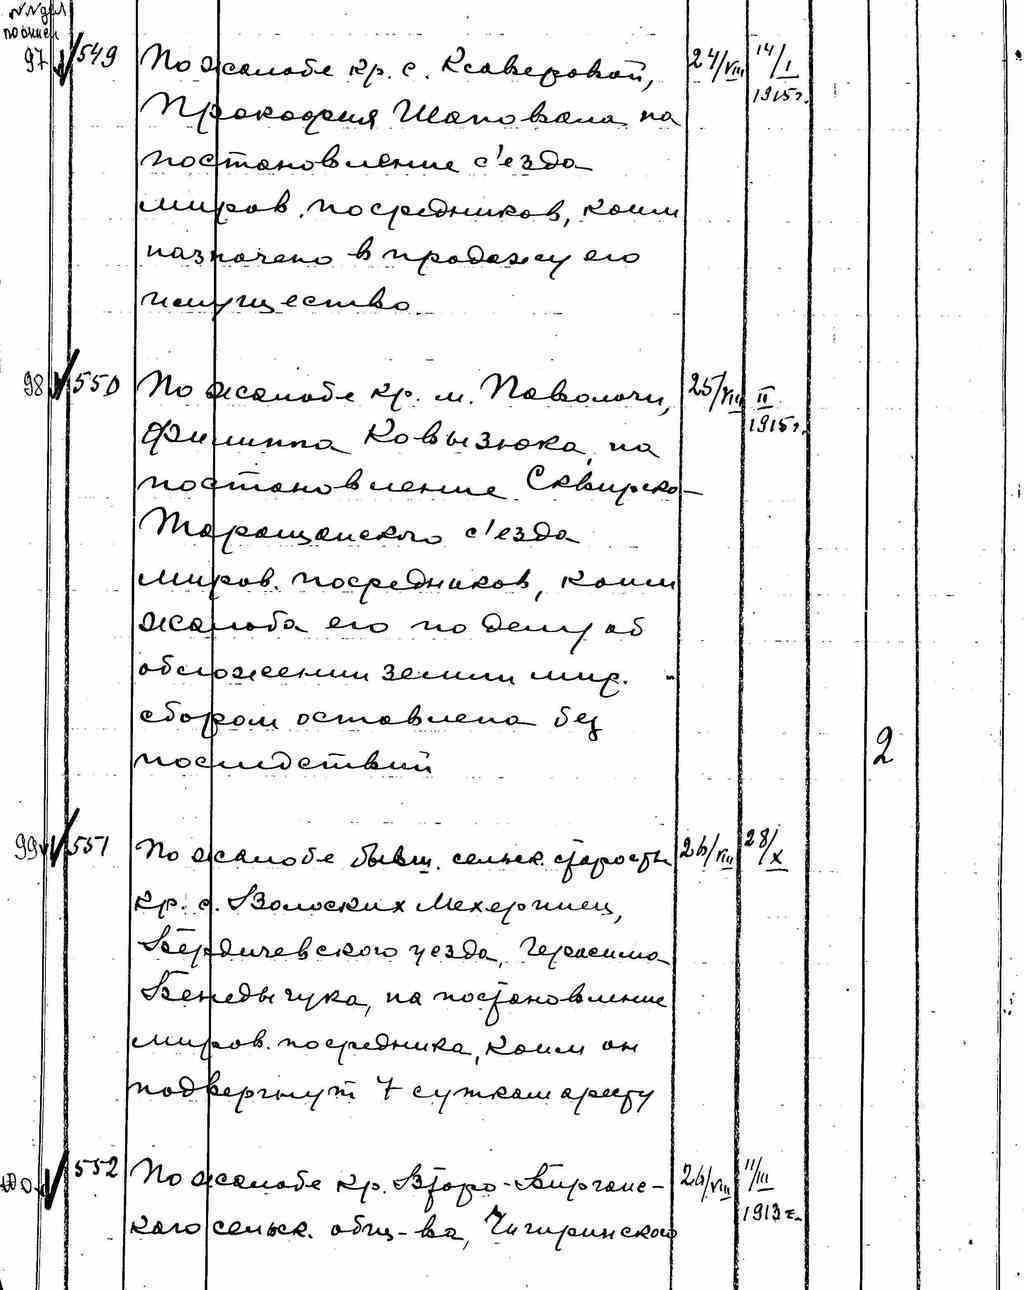 №№ дел
по описи
97 549 По жалобе кр. с. Ксаверовой, 24/VIII 14/I
1915 г.
Прокофия Шаповала на
постановление с'езда
миров. посредников, коим
назначено в продажу его
имущество
98 550 По жалобе кр. м. Паволочи, 25/VIII II
1915 г.
Филиппа Ковызюка, на
постановление Сквирско-
Таращанского с'езда
миров. посредников, коим
жалоба его по делу об
обложении земли мир.
сбором оставлена без
2
последствий
99 551 По жалобе бывш. сельск. старосты 26/VIII 28/X
кр. с. Волоских Мехеринец,
Бердичевского уезда, Герасима
Бенедычука, на постановление
миров. посредника, коим он
подвергнут 7 суткам аресту
100 552 По жалобе кр. Второ-Бирганс- 26/VIII 11/III
1913 г.
кого сельск. общ-ва, Чигиринского